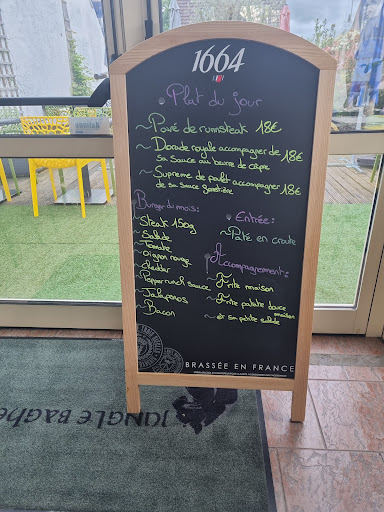 1664
Plat du jour
~ Pavé de rumsteak 18€
~ Dorade royalle accompagner de 18€
sa sauce au beurre de cèpe
~ Supreme de poulet accompagner 18€
de sa sauce forestière
Burger du mois:
~ Steak 150g
~ Salade
~ Tomate
~ Oignon rouge
~ cheddar
~ Peppercrunch sauce
~ Jalapenos
~ Bacon
~ Entrée:
~ Paté en croute
Accompagnement:
~ Frite maison
~ Frite patate douce
maison
~ et sa petite salade
BRASSÉE EN FRANCE
JANGLE BAGHE